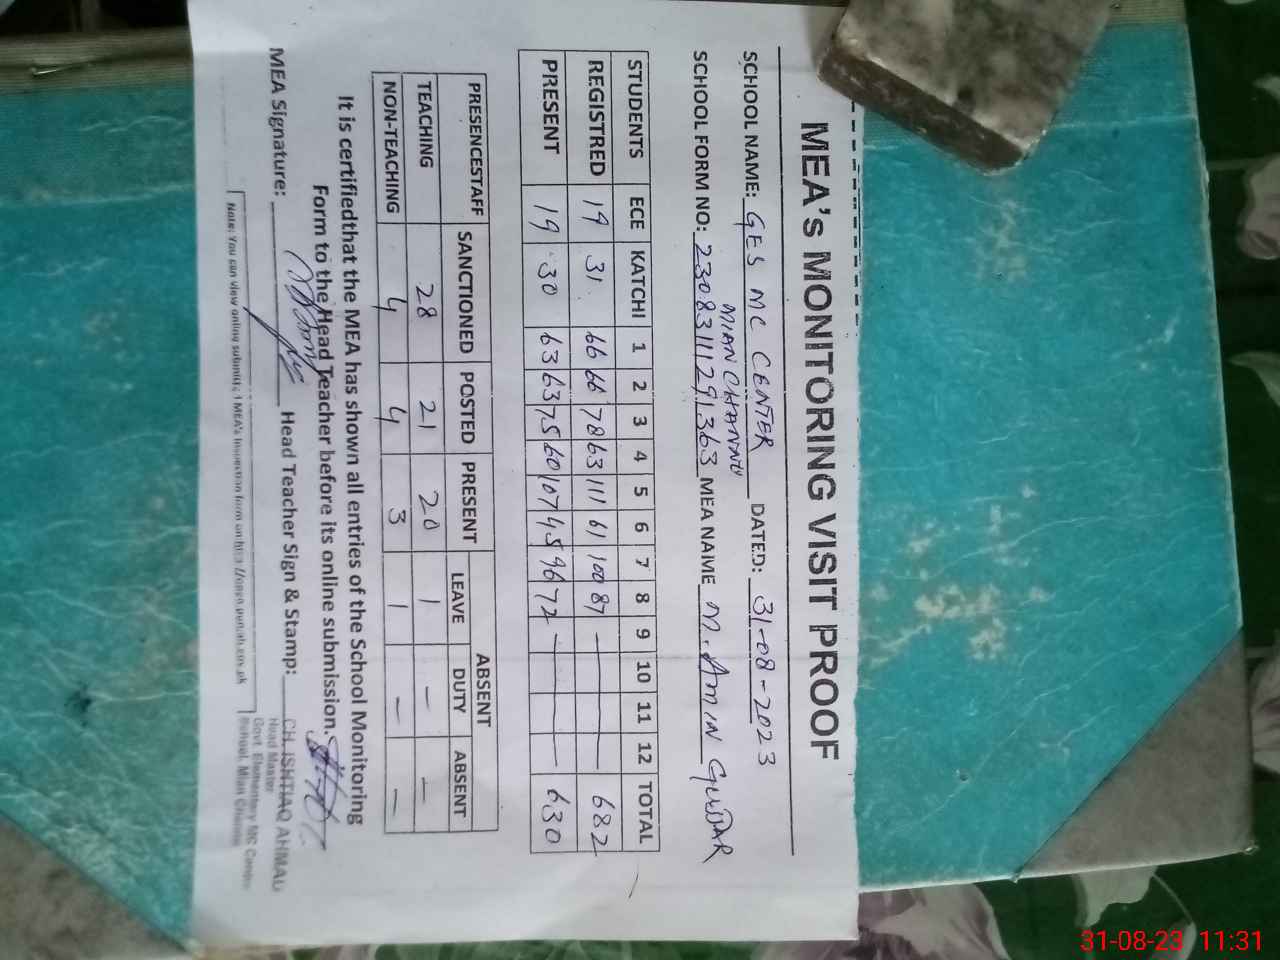 MEA's MONITORING VISIT PROOF
SCHOOL NAME: GES MC CENTER MIAN CHANNU DATED: 31-08-2023
SCHOOL FORM NO: 23083111291363 MEA NAME M. AMIN GUJJAR
STUDENTS ECE KATCHI 1 2 3 4 5 6 7 8 9 10 11 12 TOTAL
REGISTRED 19 31 66 66 78 63 111 61 100 87 — — — — 682
PRESENT 19 30 63 63 75 60 107 45 96 72 — — — — 630
PRESENCESTAFF SANCTIONED POSTED PRESENT ABSENT
LEAVE DUTY ABSENT
TEACHING 28 21 20 1 — —
NON-TEACHING 4 4 3 1 — —
It is certifiedthat the MEA has shown all entries of the School Monitoring
Form to the Head Teacher before its online submission.
MEA Signature: Head Teacher Sign & Stamp:
CH. ISHTIAQ AHMAD
Head Master
Govt. Elementary MC Centre
School, Mian Channu
Note: You can view online submitted MEA's Inspection form on
31-08-23 11:31